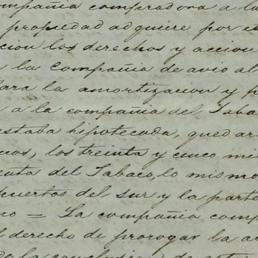 compañia compradora a la
propiedad adquiere por es
cion los derechos y accion
la Compañia de avio al
para la amortizacion y p
a la compañia del Taba
estaba hipotecada, quedar
cios, los treinta y cinco mi
enta del Tabaco, lo mismo
puertos del sur y la parte
no = La compañia comp
el derecho de prorogar la